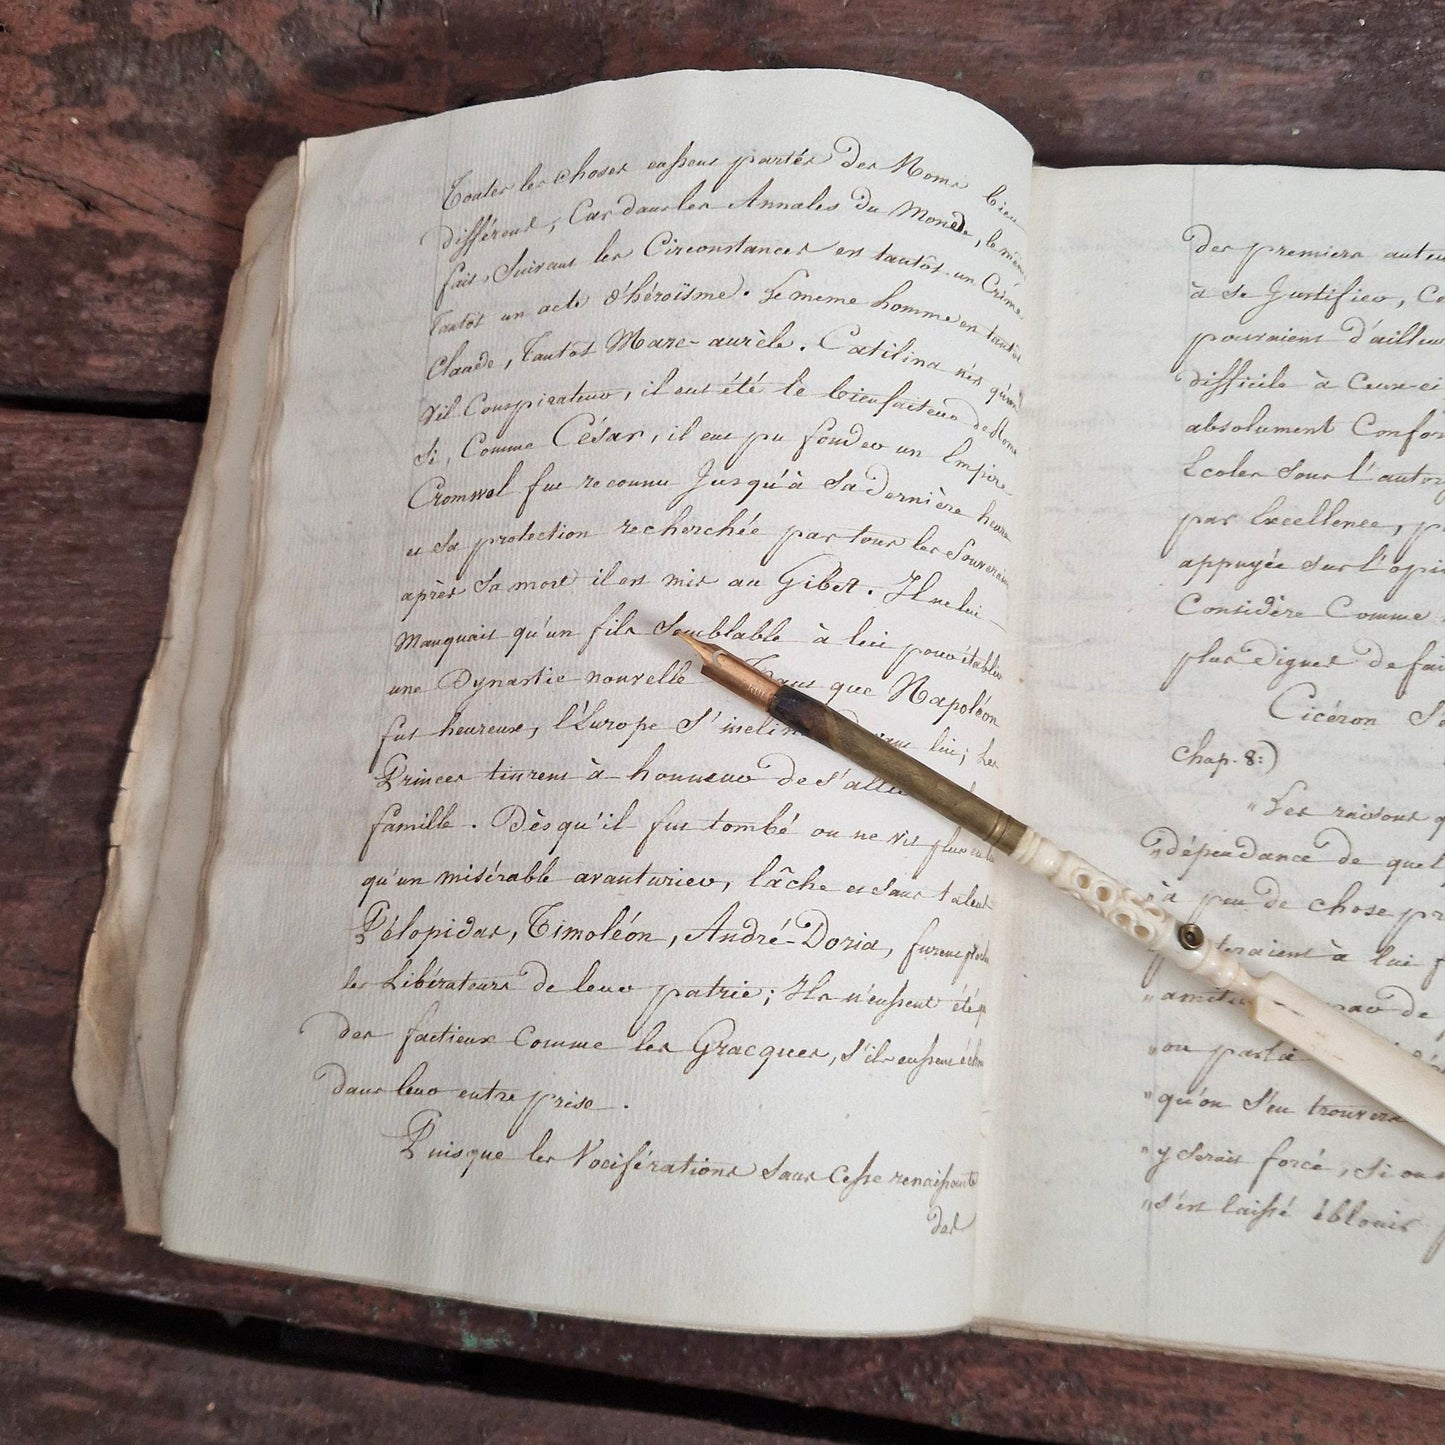 Toutes les choses eussent portés des Noms bien
différens, Car dans les Annales du Monde, le même
fait, Suivant les Circonstances est tantôt un Crime
tantôt un acte d'héroïsme. Le meme homme est tantôt
Claude, tantôt Marc-aurèle. Catilina n'est qu'un
Vil Conspirateur, il eut été le bienfaiteur de Rome
Si, Comme César, il eut pu fonder un Empire
Cromwel fut reconnu Jusqu'à Sa dernière heure
et Sa protection recherchée par tous les Souverains
après Sa mort il est mis au Gibet. Il ne lui
Manquait qu'un fils Semblable à lui pour établir
une Dynastie nouvelle que Napoléon
fut heureux, l'Europe S'inclina lui; Les
Princes tinrent à honneur de S'
famille. Dès qu'il fut tombé on ne vit plus
qu'un misérable avanturier, lâche et Sans talens
Pélopidas, Timoléon, André-Doria, furent
les Libérateurs de leur patrie; Ils n'eussent été
des factieux Comme les Gracques, S'ils eussent
dans leur entreprise.
Puisque les Vociférations Sans Cesse renaissantes
des
des premiers
à Se Justifier,
pourraient d'ailleurs
difficile à Ceux-ci
absolument
Ecoles Sous
par Excellence,
appuyée Sur
Considère Comme
plus dignes de
Cicéron
Chap. 8:)
"Les raisons
"dépendance de
"à peu de chose
à lui
"
"ou
"qu'on S'en trouvera
"y Serait forcé, Si
"S'est laissé éblouir